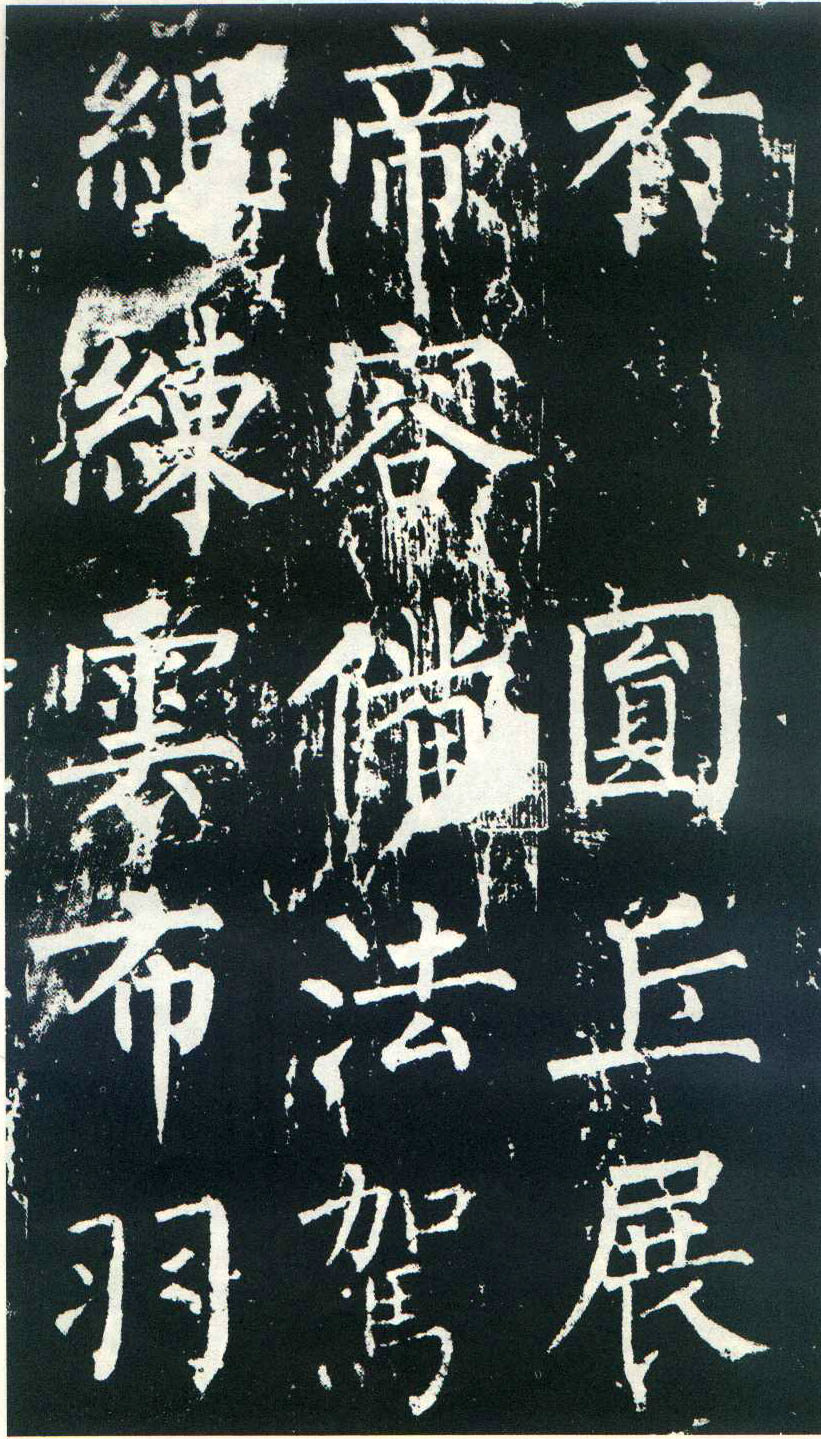 於 圓丘展
帝容備法駕
組練雲布羽